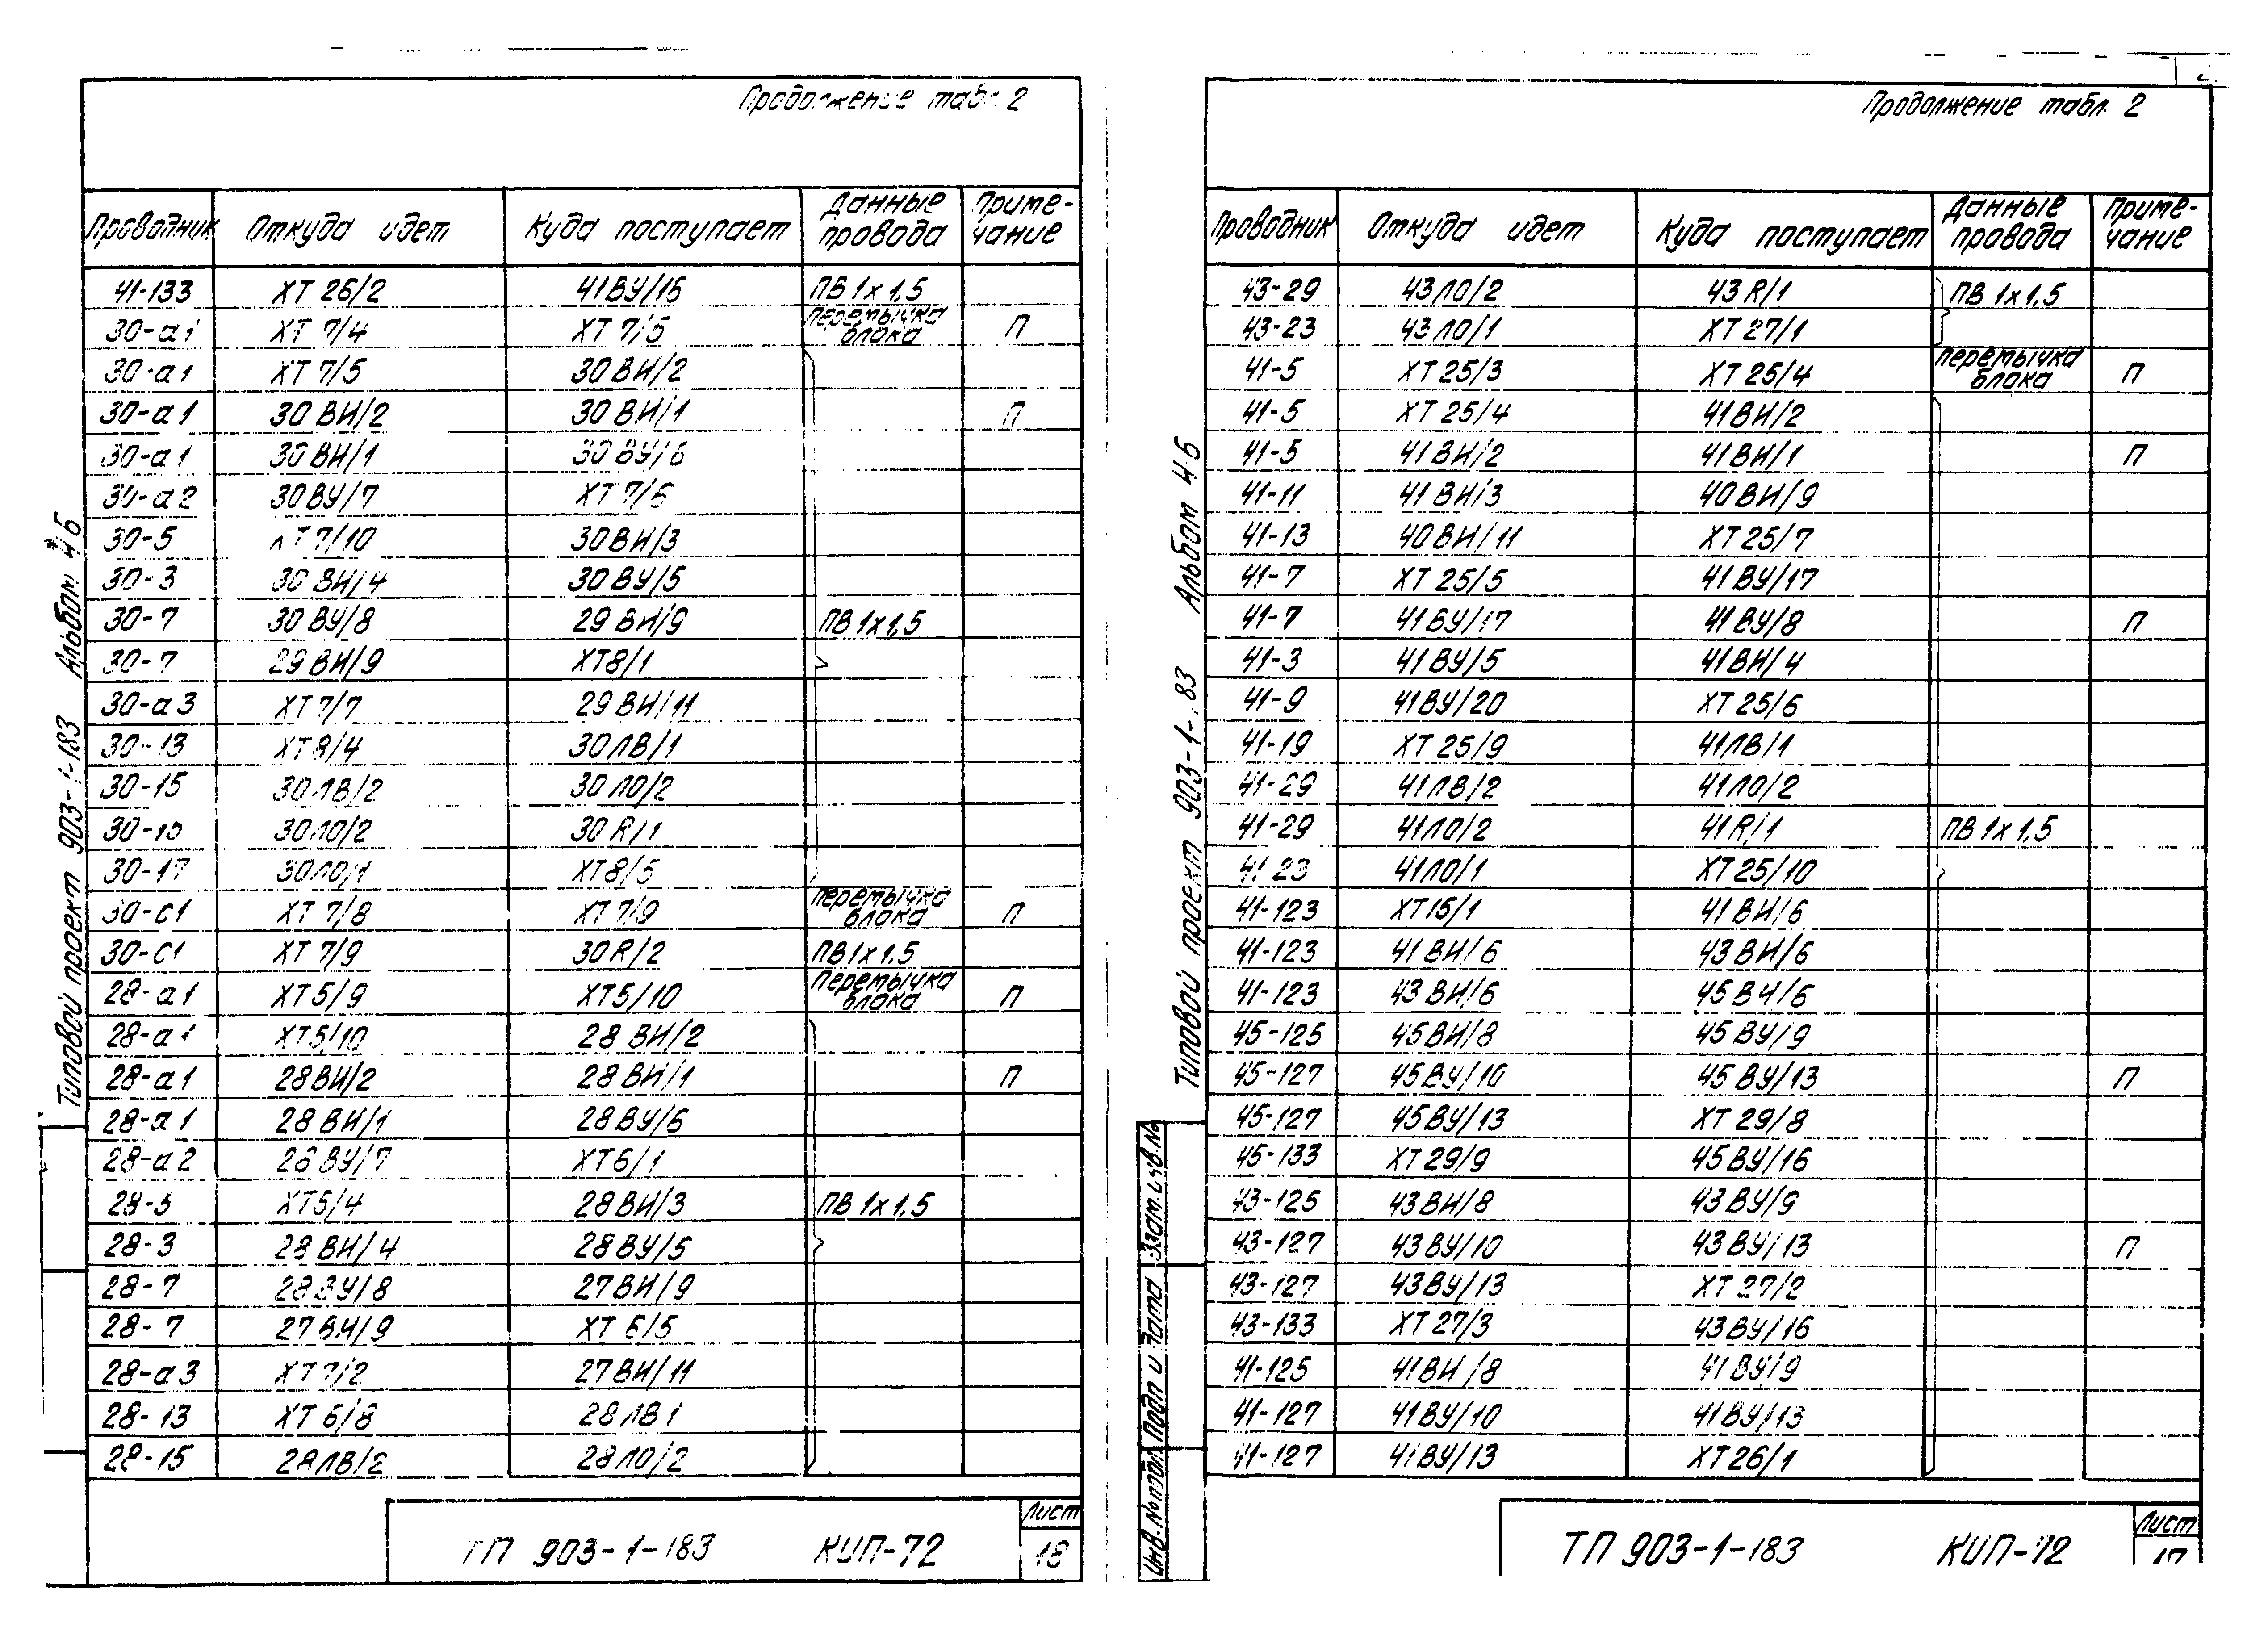 Продолжение табл. 2
Проводник Откуда идет Куда поступает Данные провода Приме-чание
41-133 ХТ 26/2 41ВУ/16 ПВ 1х1,5
30-а1 ХТ 7/4 ХТ 7/5 перемычка блока П
30-а1 ХТ 7/5 30ВИ/2
30-а1 30ВИ/2 30ВИ/1 П
30-а1 30ВИ/1 30ВУ/6
30-а2 30ВУ/7 ХТ 7/6
30-5 ХТ 7/10 30ВИ/3
30-3 30ВИ/4 30ВУ/5
30-7 30ВУ/8 29ВИ/9 ПВ 1х1,5
30-7 29ВИ/9 ХТ8/1
30-а3 ХТ7/7 29ВИ/11
30-13 ХТ8/4 30ЛВ/1
30-15 30ЛВ/2 30ЛО/2
30-15 30ЛО/2 30R/1
30-17 30ЛО/1 ХТ8/5
30-с1 ХТ 7/8 ХТ 7/9 перемычка блока П
30-с1 ХТ 7/9 30R/2 ПВ1х1,5
28-а1 ХТ5/9 ХТ5/10 перемычка блока П
28-а1 ХТ5/10 28ВИ/2
28-а1 28ВИ/2 28ВИ/1 П
28-а1 28ВИ/1 28ВУ/6
28-а2 28ВУ/7 ХТ6/1
28-5 ХТ5/4 28ВИ/3 ПВ 1х1,5
28-3 28ВИ/4 28ВУ/5
28-7 28ВУ/8 27ВИ/9
28-7 27ВИ/9 ХТ 6/5
28-а3 ХТ7/2 27ВИ/11
28-13 ХТ 6/8 28ЛВ1
28-15 28ЛВ/2 28ЛО/2
Типовой проект 903-1-183 Альбом 4.6
ТП 903-1-183 КИП-72
Лист
18
Продолжение табл. 2
Проводник Откуда идет Куда поступает Данные провода Приме-чание
43-29 43ЛО/2 43R/1 ПВ 1х1,5
43-23 43ЛО/1 ХТ27/1
41-5 ХТ25/3 ХТ25/4 перемычка блока П
41-5 ХТ25/4 41ВИ/2
41-5 41ВИ/2 41ВИ/1 П
41-11 41ВИ/3 40ВИ/9
41-13 40ВИ/11 ХТ25/7
41-7 ХТ25/5 41ВУ/17
41-7 41ВУ/17 41ВУ/8 П
41-3 41ВУ/5 41ВИ/4
41-9 41ВУ/20 ХТ25/6
41-19 ХТ25/9 41ЛВ/1
41-29 41ЛВ/2 41ЛО/2
41-29 41ЛО/2 41R/1 ПВ 1х1,5
41 23 41ЛО/1 ХТ25/10
41-123 ХТ15/1 41ВИ/6
41-123 41ВИ/6 43ВИ/6
41-123 43ВИ/6 45ВИ/6
45-125 45ВИ/8 45ВУ/9
45-127 45ВУ/10 45ВУ/13 П
45-127 45ВУ/13 ХТ 29/8
45-133 ХТ29/9 45ВУ/16
43-125 43ВИ/8 43ВУ/9
43-127 43ВУ/10 43ВУ/13 П
43-127 43ВУ/13 ХТ 27/2
43-133 ХТ 27/3 43ВУ/16
41-125 41ВИ/8 41ВУ/9
41-127 41ВУ/10 41ВУ/13
41-127 41ВУ/13 ХТ26/1
Типовой проект 903-1-183 Альбом 4.6
Взам.инв.№
Подп. и дата
Инв.№подл.
ТП 903-1-183 КИП-72
Лист